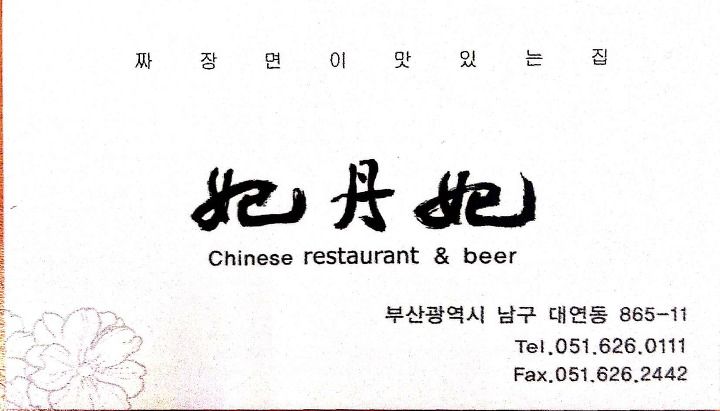 짜장면이맛있는집
妃丹妃
Chinese restaurant & beer
부산광역시 남구 대연동 865-11
Tel.051.626.0111
Fax.051.626.2442